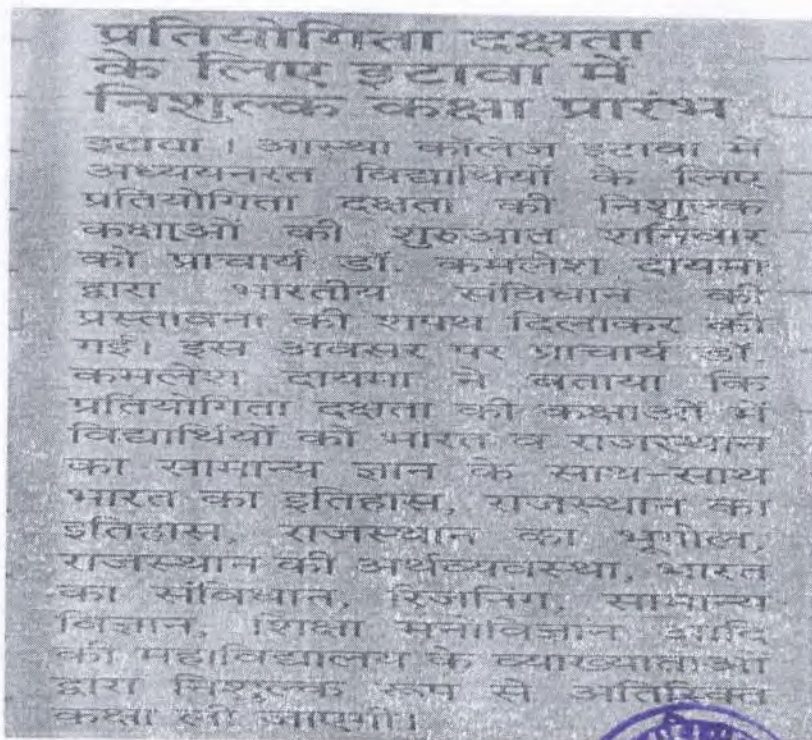 प्रतियोगिता दक्षता
के लिए इटावा में
निशुल्क कक्षा प्रारंभ
इटावा । आस्था कॉलेज इटावा में
अध्ययनरत विद्यार्थियों के लिए
प्रतियोगिता दक्षता की निशुल्क
कक्षाओं की शुरुआत शनिवार
को प्राचार्य डॉ. कमलेश दायमा
द्वारा भारतीय संविधान की
प्रस्तावना की शपथ दिलाकर की
गई। इस अवसर पर प्राचार्य डॉ.
कमलेश दायमा ने बताया कि
प्रतियोगिता दक्षता की कक्षाओं में
विद्यार्थियों को भारत व राजस्थान
का सामान्य ज्ञान के साथ-साथ
भारत का इतिहास, राजस्थान का
इतिहास, राजस्थान का भूगोल,
राजस्थान की अर्थव्यवस्था, भारत
का संविधान, रिजनिंग, सामान्य
विज्ञान, शिक्षा मनोविज्ञान आदि
की महाविद्यालय के व्याख्याताओं
द्वारा निशुल्क रूप से अतिरिक्त
कक्षा ली जाएगी।